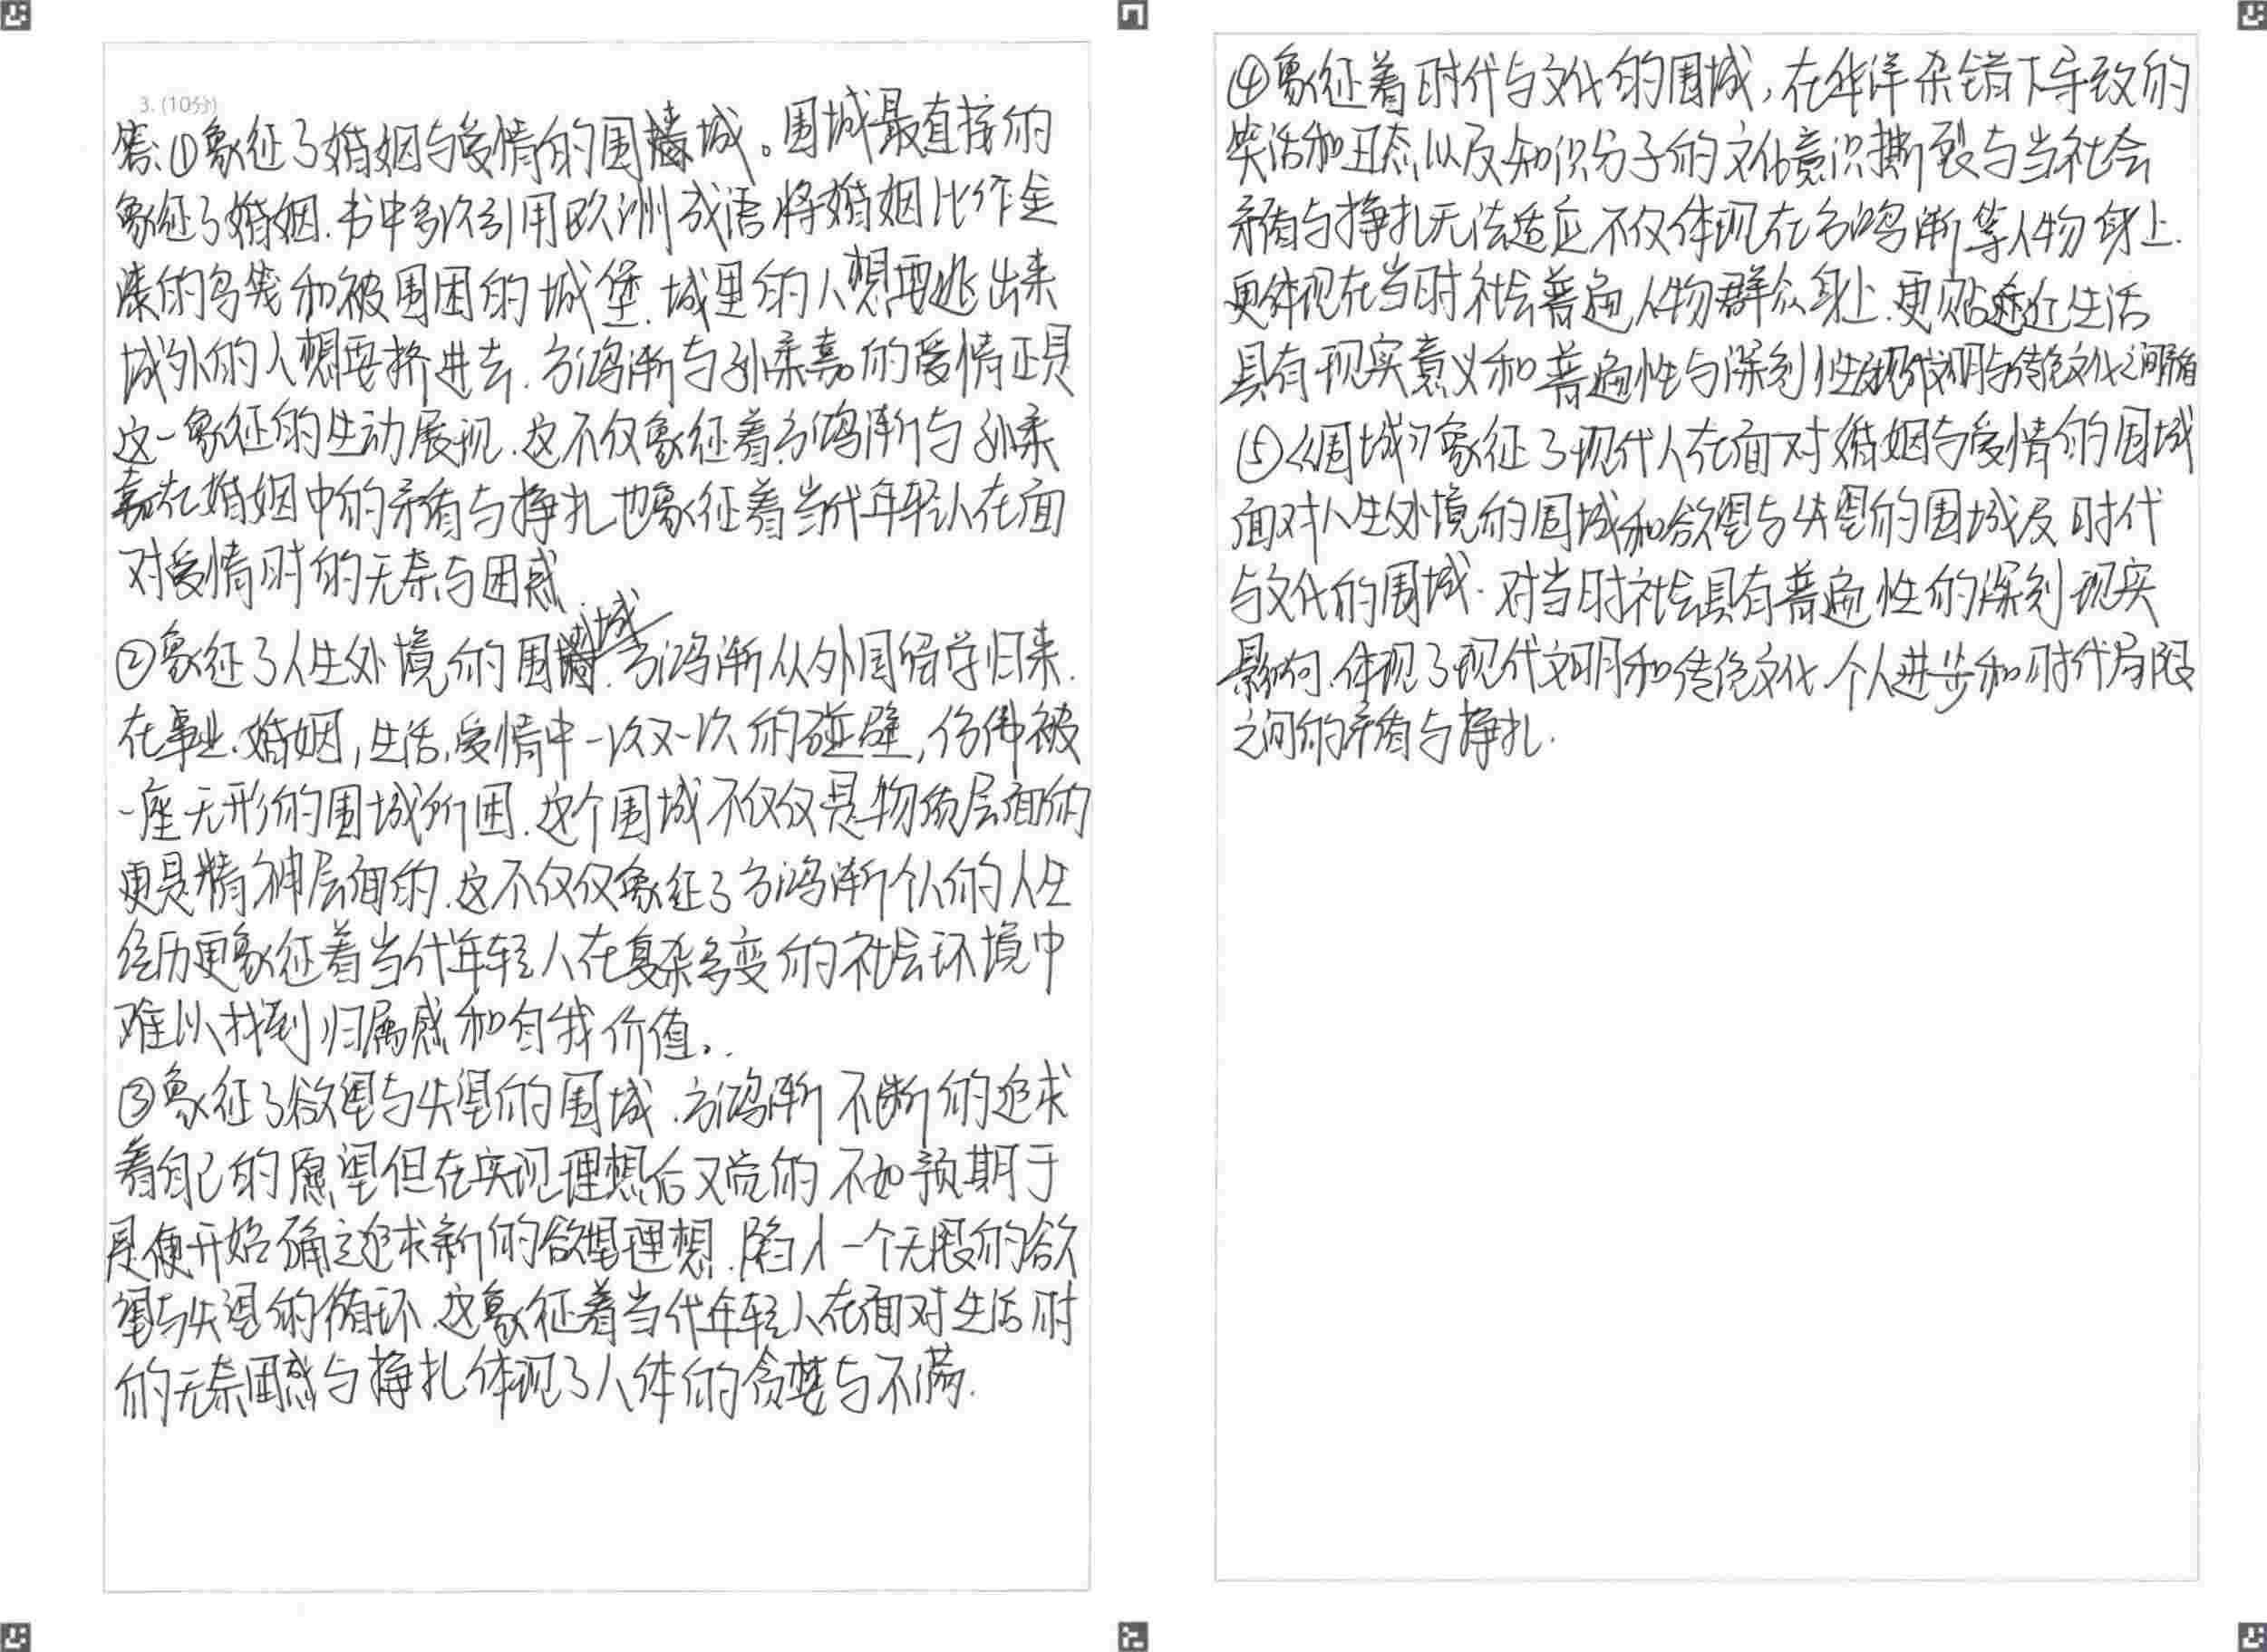 3. (10分)
答:①象征了婚姻与爱情的围城。围城最直接的
象征了婚姻.书中多次引用欧洲成语将婚姻比作金
漆的鸟笼和被围困的城堡.城里的人想要逃出来
城外的人想要挤进去.方鸿渐与孙柔嘉的爱情正是
这一象征的生动展现.这不仅象征着方鸿渐与孙柔
嘉在婚姻中的矛盾与挣扎也象征着当代年轻人在面
对爱情时的无奈与困惑.
②象征了人生处境的围城.方鸿渐从外国留学归来.
在事业.婚姻,生活,爱情中一次又一次的碰壁,仿佛被
一座无形的围城所困.这个围城不仅仅是物质层面的
更是精神层面的.这不仅仅象征了方鸿渐个人的人生
经历更象征着当代年轻人在复杂多变的社会环境中
难以找到归属感和自我价值。
③象征了欲望与失望的围城.方鸿渐不断的追求
着自己的愿望但在实现理想后又觉的不如预期于
是便开始确立追求新的欲望理想.陷入一个无限的欲
望与失望的循环.这象征着当代年轻人在面对生活时
的无奈困惑与挣扎体现了人体的贪婪与不满.
④象征着时代与文化的围城,在华洋杂错下导致的
笑话和丑态,以及知识分子的文化意识撕裂与当社会
矛盾与挣扎无法适应不仅体现在方鸿渐等人物身上.
更体现在当时社会普遍人物群众身上.更贴近生活
具有现实意义和普遍性与深刻性现代文明与传统文化之间矛盾
⑤《围城》象征了现代人在面对婚姻与爱情的围城
面对人生处境的围城和欲望与失望的围城及时代
与文化的围城.对当时社会具有普遍性的深刻现实
影响.体现了现代文明和传统文化.个人进步和时代局限
之间的矛盾与挣扎.